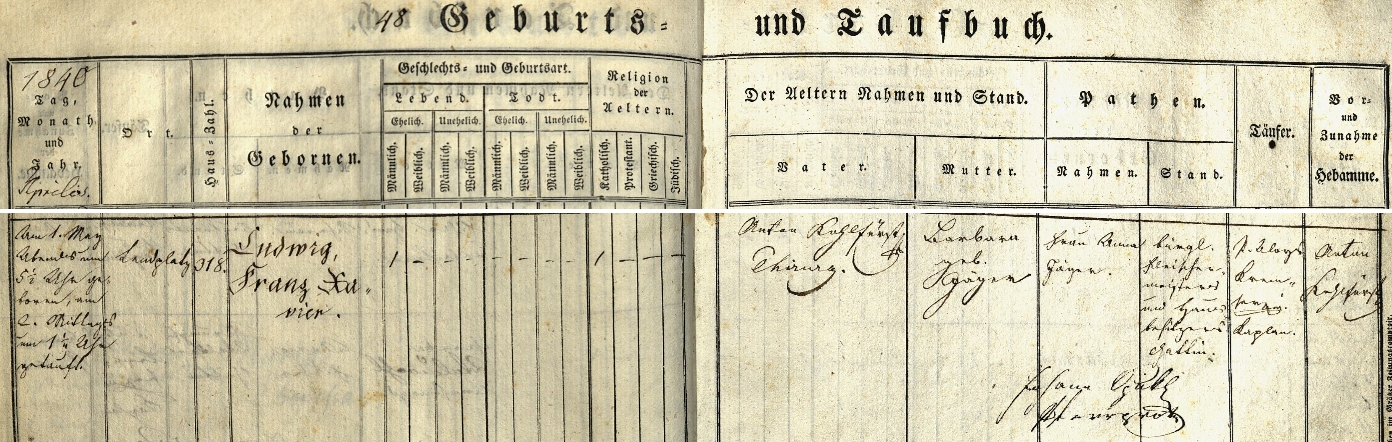 48 Geburts-
und Taufbuch.
1840
Tag,
Monath
und
Jahr.
Aprilis.
Ort.
Haus-Zahl.
Nahmen
der
Gebornen.
Geschlechts- und Geburtsart.
Lebend. Todt.
Ehelich. Unehelich. Ehelich. Unehelich.
Männlich. Weiblich. Männlich. Weiblich. Männlich. Weiblich. Männlich. Weiblich.
Religion
der
Aeltern.
Katholisch. Protestant. Griechisch. Jüdisch.
Der Aeltern Nahmen und Stand.
Vater. Mutter.
Pathen.
Nahmen. Stand.
Täufer.
Vor-
und
Zunahme
der
Hebamme.
Am 1. May
Abends um
5½ Uhr ge-
boren, am
2. Mittags
um 1½ Uhr
getauft.
Lendplatz
318.
Ludwig,
Franz Xa-
vier.
1 - - - - - - - 1 - - -
Anton Kohlfürst
Chirurg.
Barbara
geb.
Jäger
Frau Anna
Jäger.
bürgl.
Fleischer-
meisters
und Haus-
besitzers
Gattin.
P. Aloys
Krem-
Kaplan.
Anton
Kohlfürst
Johann